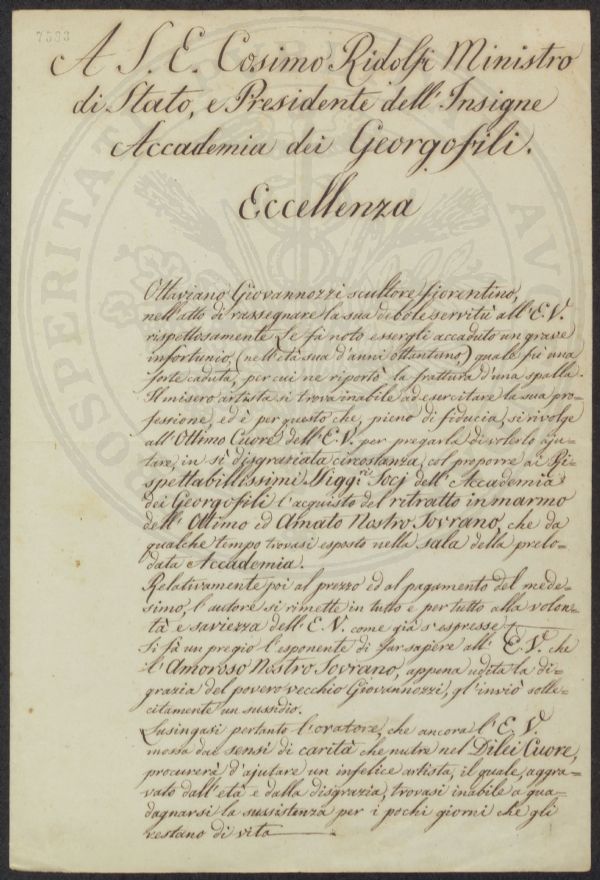 7583
A S. E. Cosimo Ridolfi Ministro
di Stato, e Presidente dell'Insigne
Accademia dei Georgofili.
Eccellenza
Ottaviano Giovannozzi scultore fiorentino,
nell'atto di rassegnare la sua debole servitù all'E.V.
rispettosamente Le fà noto essergli accaduto un grave
infortunio, (nell'età sua d'anni ottantuno,) quale fù una
forte caduta, per cui ne riportò la frattura d'una spalla.
Il misero artista si trova inabile ad esercitare la sua pro=
fessione, ed è per questo che, pieno di fiducia, si rivolge
all'Ottimo Cuore dell'E.V. per pregarla di volerlo aju=
tare, in sì disgraziata circostanza, col proporre ai Ri=
spettabilissimi Sigg.ri Socj dell'Accademia
dei Georgofili l'acquisto del ritratto in marmo
dell'Ottimo ed Amato Nostro Sovrano, che da
qualche tempo trovasi esposto nella sala della prelo=
data Accademia.
Relativamente poi al prezzo ed al pagamento del mede=
simo, l'autore si rimette in tutto e per tutto alla volon=
tà e saviezza dell'E.V. come già s'espresse.
Si fà un pregio l'esponente di far sapere all'E.V. che
l'Amoroso Nostro Sovrano, appena udita la di=
grazia del povero vecchio Giovannozzi, gl'inviò solle=
citamente un sussidio.
Lusingasi pertanto l'oratore, che ancora l'E.V.
mossa dai sensi di carità che nutre nel Di lei Cuore,
procurerà d'ajutare un infelice artista, il quale, aggra=
vato dall'età e dalla disgrazia, trovasi inabile a gua=
dagnarsi la sussistenza per i pochi giorni che gli
restano di vita
PROSPERITATI